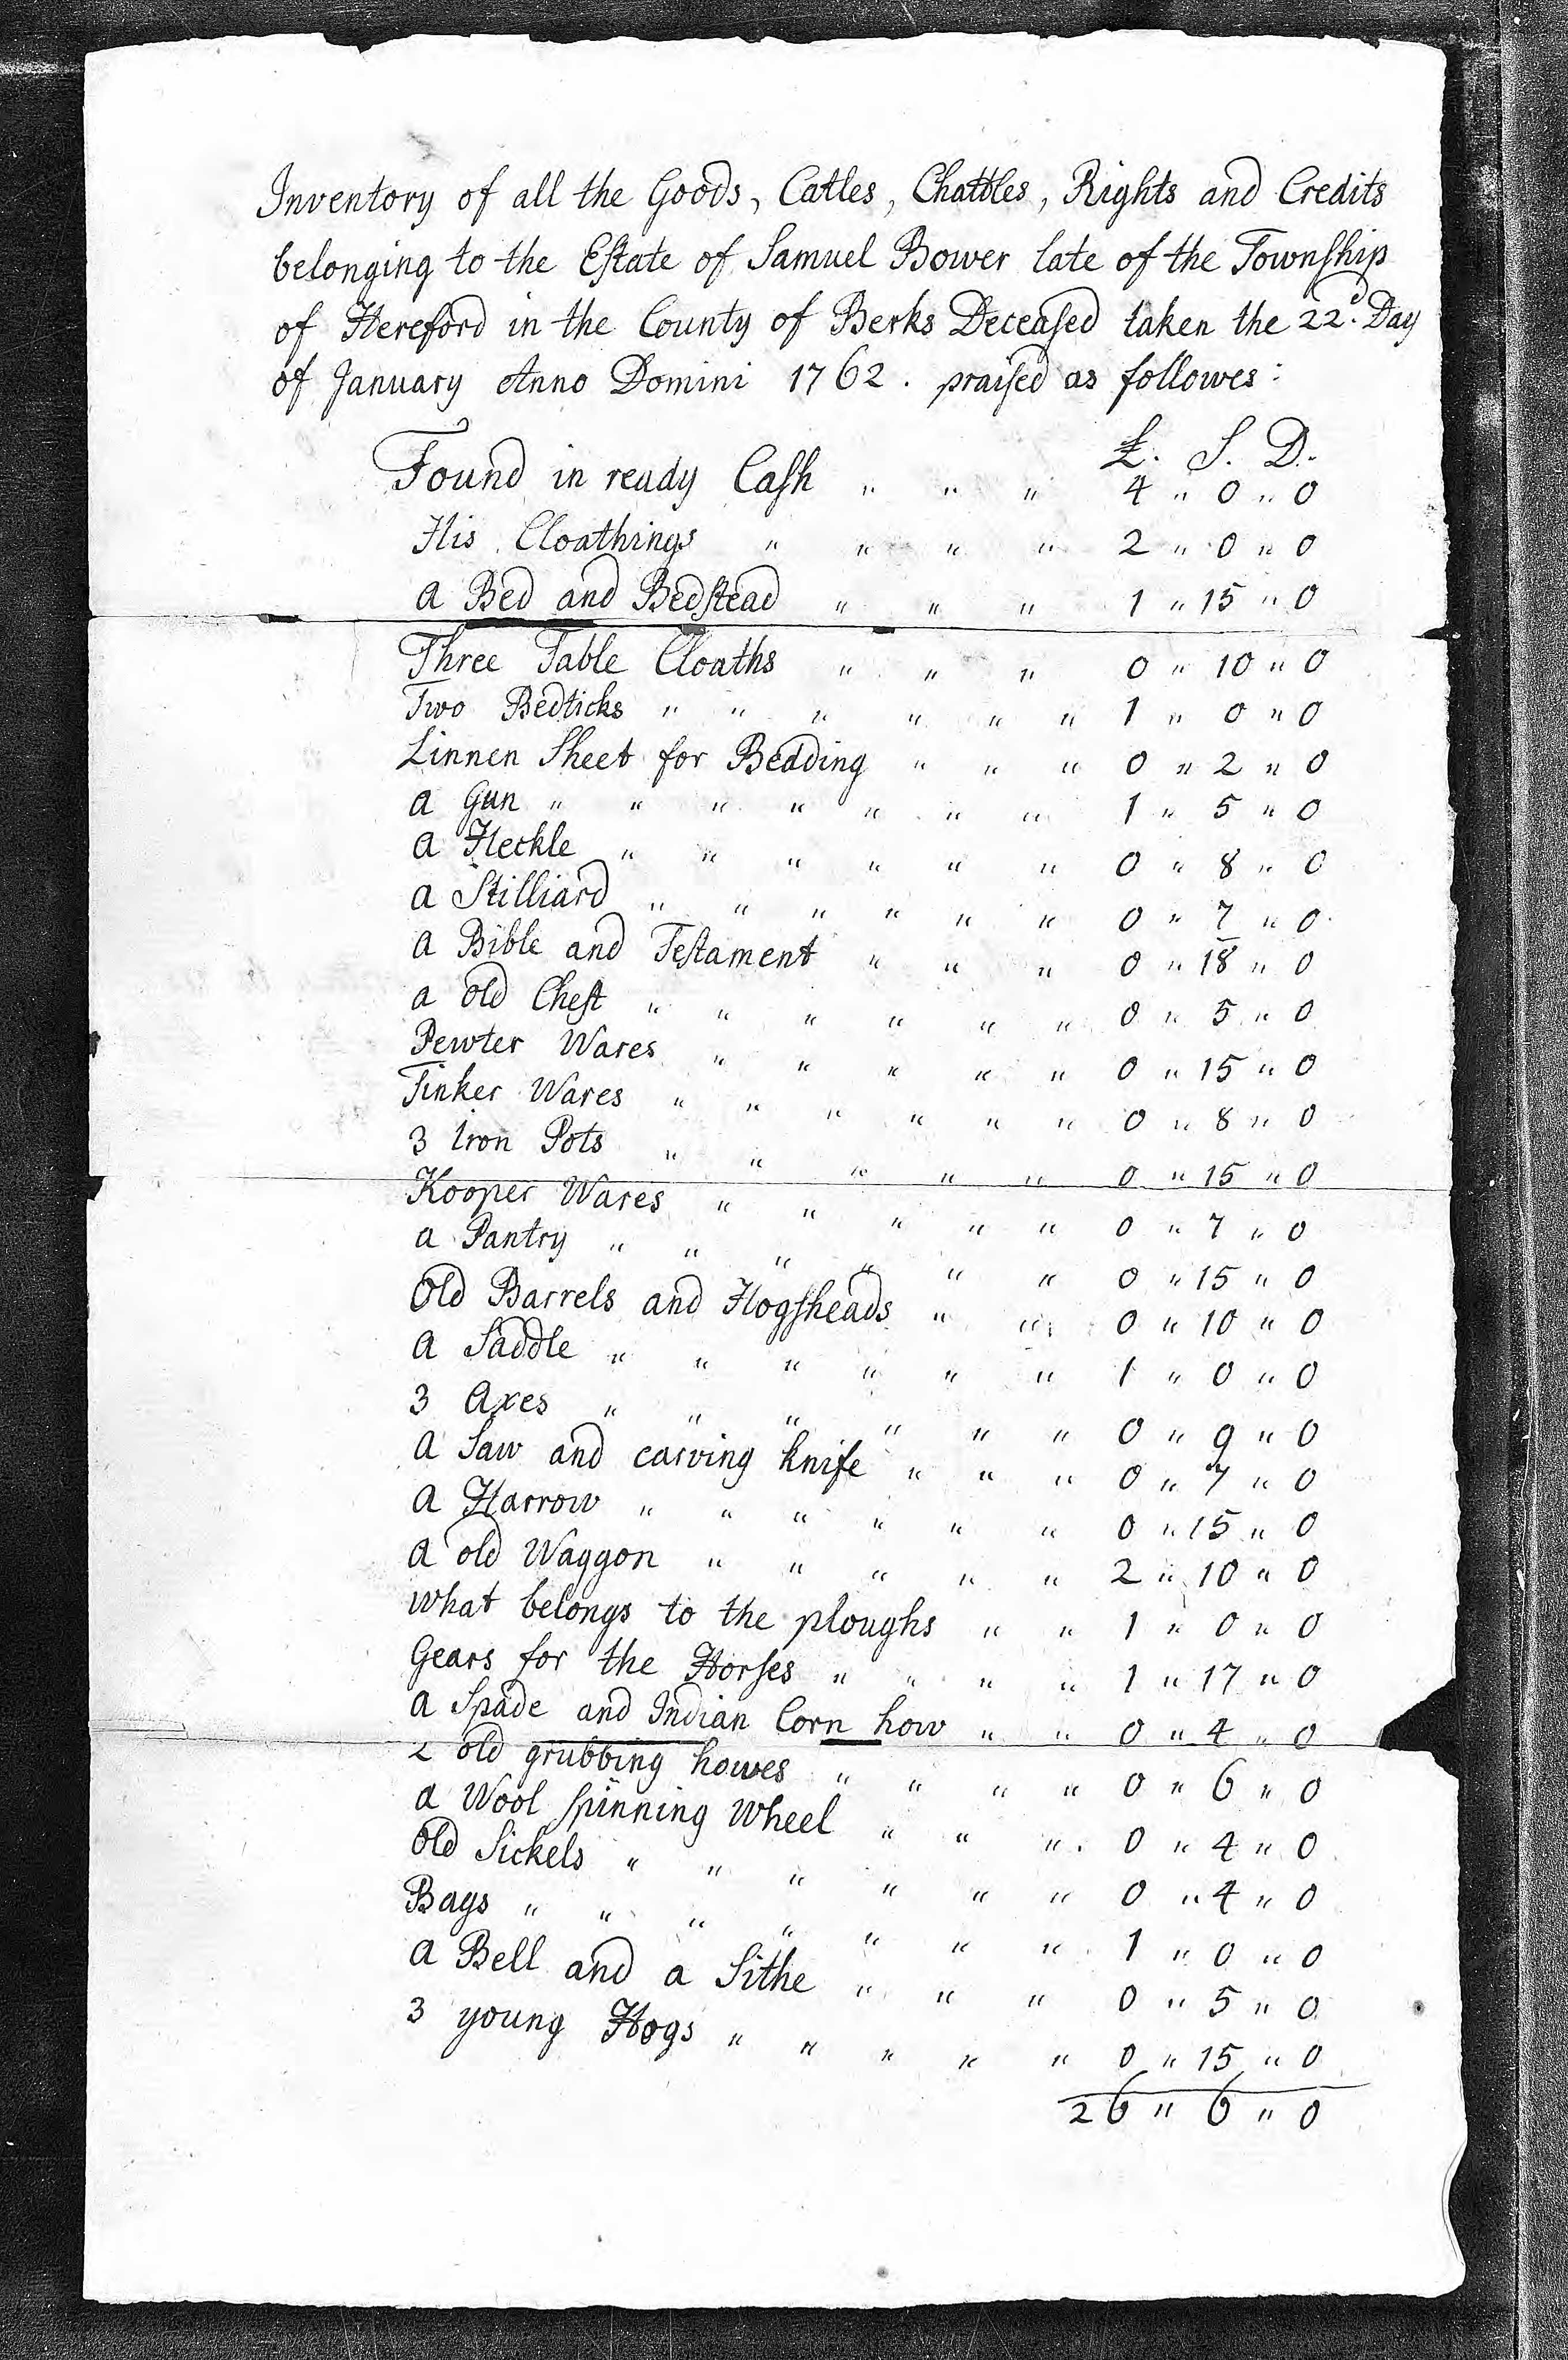 Inventory of all the Goods, Catles, Chattles, Rights and Credits
belonging to the Eſtate of Samuel Bower late of the Townſhip
of Hereford in the County of Berks Deceaſed taken the 22.d Day
of January Anno Domini 1762. praiſed as followes:
£. S. D.
Found in ready Caſh " " " 4 " 0 " 0
His Cloathings " " " " 2 " 0 " 0
a Bed and Bedſtead " " " 1 " 15 " 0
Three Table Cloaths " " " 0 " 10 " 0
Two Bedticks " " " " " " 1 " 0 " 0
Linnen Sheet for Bedding " " " 0 " 2 " 0
a Gun " " " " " " " 1 " 5 " 0
a Heckle " " " " " " 0 " 8 " 0
a Stilliard " " " " " " 0 " 7 " 0
a Bible and Teſtament " " " 0 " 18 " 0
a old Cheſt " " " " " " 0 " 5 " 0
Pewter Wares " " " " " 0 " 15 " 0
Tinker Wares " " " " " " 0 " 8 " 0
3 Iron Pots " " " " " 0 " 15 " 0
Kooper Wares " " " " " 0 " 7 " 0
a Pantry " " " " " " 0 " 15 " 0
Old Barrels and Hogſheads " " 0 " 10 " 0
a Saddle " " " " " " 1 " 0 " 0
3 Axes " " " " " " 0 " 9 " 0
a Saw and carving knife " " " 0 " 7 " 0
a Harrow " " " " " " 0 " 15 " 0
a old Waggon " " " " " 2 " 10 " 0
what belongs to the ploughs " " 1 " 0 " 0
Gears for the Horſes " " " " 1 " 17 " 0
a Spade and Indian Corn how " " 0 " 4 " 0
2 old grubbing howes " " " " 0 " 6 " 0
a Wool ſpinning Wheel " " " 0 " 4 " 0
Old Sickels " " " " " " 0 " 4 " 0
Bags " " " " " " " 1 " 0 " 0
a Bell and a Sithe " " " 0 " 5 " 0
3 young Hogs " " " " " 0 " 15 " 0
26 " 6 " 0